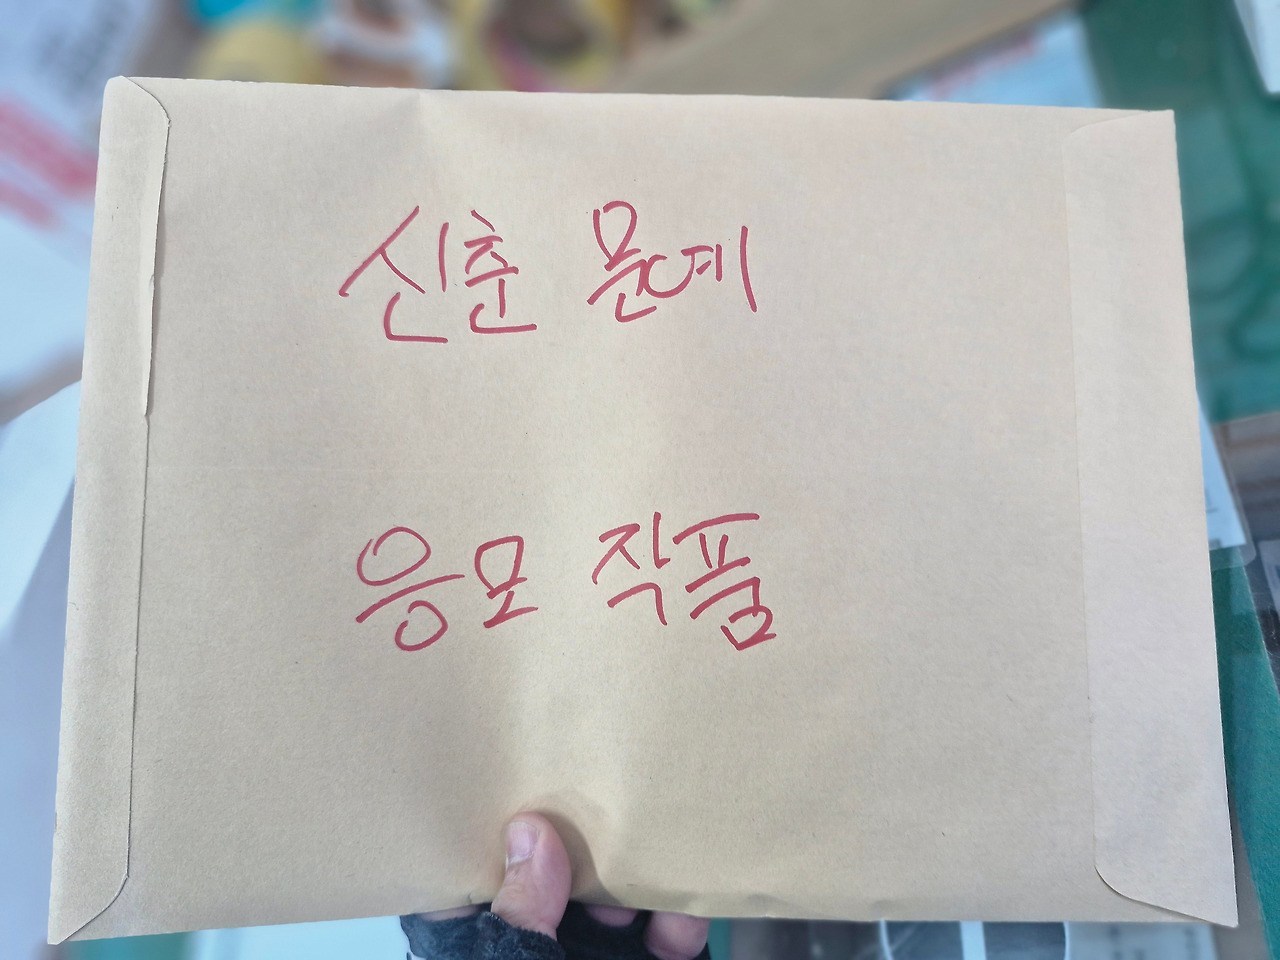 신춘 문예
응모 작품